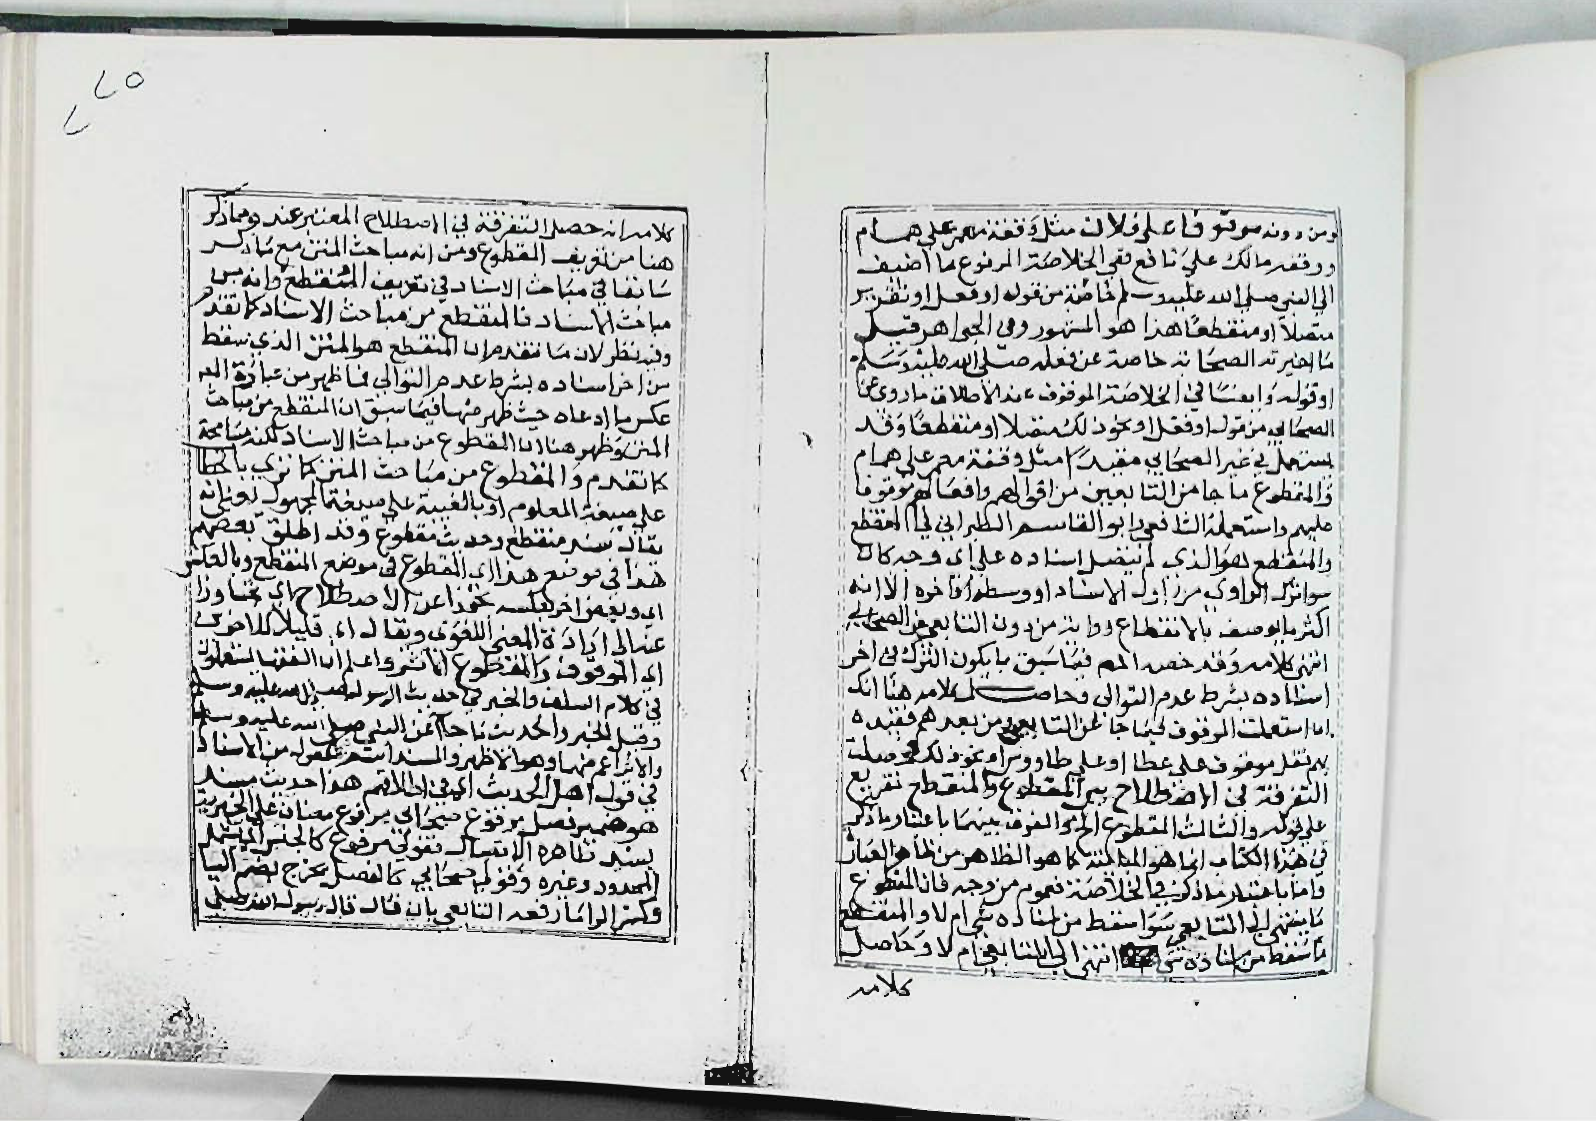 ومن دونه موقوفا على فلان مثل وقفه معمر على همام
ووقفه مالك على نافع ففي الخلاصة المرفوع ما اضيف
الى النبي صلى الله عليه وسلم خاصة من قوله او فعل او تقرير
متصلا او منقطعا هذا هو المشهور وفي الجواهر قيل
ما اخبر به الصحابة خاصة عن فعله صلى الله عليه وسلم
او قوله وايضا في الخلاصة الموقوف عند الاطلاق ما روى عن
الصحابي من قول او فعل او نحو ذلك متصلا او منقطعا وقد
يستعمل في غير الصحابي مقيدا مثل وقفه معمر على همام
والمقطوع ما جا من التابعين من اقوالهم وافعالهم موقوفا
عليهم واستعمله الشافعي وابو القاسم الطبراني في المنقطع
والمنقطع هو الذي لم يتصل اسناده على اى وجه كان
سوا ترك الراوي من اول الاسناد او وسطه او اخره الا انه
اكثر ما يوصف بالانقطاع رواية من دون التابعي عن الصحابي
انتهى كلامه وقد خصه المص فيما سبق بما يكون الترك في اخر
اسناده بشرط عدم التوالى وحاصل كلامه هنا انك
اذا استعملت الموقوف فيما جا عن التابعين ومن بعدهم فقيده
بهم فقل موقوف على عطا او على طاووس او نحو ذلك فحصلت
التفرقة في الاصطلاح بين المقطوع والمنقطع تفريع
على قوله والثالث المقطوع الخ والفرق بينهما باعتبار ما ذكر
في هذا الكتاب انما هو المباينة كما هو الظاهر من ظاهر العبارة
واما باعتبار ما ذكر في الخلاصة فعموم من وجه فان المقطوع
ما ينتهي الى التابعي سوا سقط من اسناده شي ام لا والمنقطع
ما سقط من اسناده شي انتهى الى التابعي ام لا وحاصل
كلامه
كلامه انه حصل التفرقة في الاصطلاح المعتبر عندهم مما ذكر
هنا من تعريف المقطوع ومن انه مباحث المتن مع ما ذكر
سابقا في مباحث الاسناد في تعريف المنقطع وانه من
مباحث الاسناد فالمنقطع من مباحث الاسناد كما تقدم
وفيه نظر لان ما تقدم ان المنقطع هو المتن الذي سقط
من اخر اسناده بشرط عدم التوالي فما ظهر من عبارة المص
عكس ما ادعاه حيث ظهر منها فيما سبق ان المنقطع من مباحث
المتن وظهر هنا ان المقطوع من مباحث الاسناد لكنه
كما تقدم والمقطوع من مباحث المتن كما ترى بالخطا
على صيغة المعلوم او بالغيبة على صيغة المجهول
يقال سند منقطع وحديث مقطوع وقد اطلق بعضهم
هذا في موضع هذا اي المقطوع في موضع المنقطع وبالعكس
اي وبعض اخر بعكسه تجوزا عن الاصطلاح اي تجاوزا
عنه الى ارادة المعنى اللغوى ويقال اى قليلا للاخيرين
اي الموقوف والمقطوع الاثر واعلم ان الفقها يستعملونه
في كلام السلف والخبر في حديث الرسول صلى الله عليه وسلم
وقيل الخبر والحديث ما جا عن النبي صلى الله عليه وسلم
والاثر اعم منهما وهو الاظهر والمسند اسم مفعول من الاسناد
في قول اهل الحديث اي في اطلاقهم هذا حديث مسند
هو ضمير فصل مرفوع صحابي مرفوع مضاف
بسند ظاهره الاتصال فقولي مرفوع كالجنس
المحدود وغيره وقولي صحابي كالفصل يخرج
ما رفعه التابعي بان قال قال رسول الله صلى